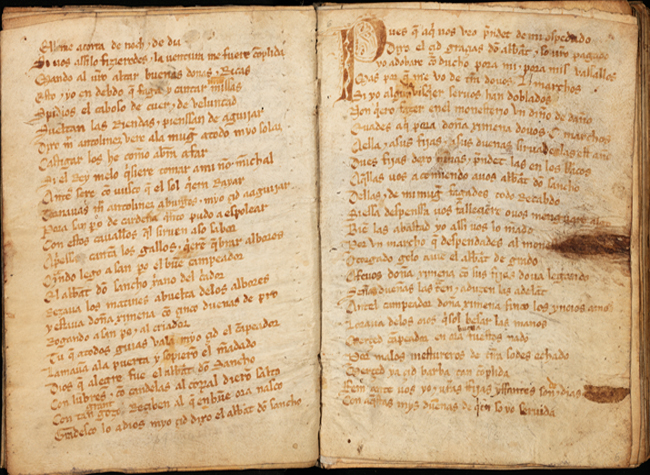 Ella me acorra de noch & de dia
Si vos assi lo fizieredes & la uentura me fuere cõplida
Mando al vr̃o altar buenas donas & Ricas
Esto & yo en debdo q̃ faga y cantar mill missas
Spidios el caboso de cuer & de veluntad
Sueltan las Riendas & pienssan de aguijar
Dixo mĩ antolinez vere ala mugr̃ atodo myo solaz
Castigar los he como abrã a far
Si el Rey melo q̃siere tomar ami nõ minchal
Antes sere cõ uusco q̃ el sol q̃era Rayar
Tornauas mĩ antolinez aburgos & myo çid aaguijar
Pora san pº de cardeña q̃nto pudo a espolear
Con estos cauallos q̃l siruen aso sabor
Apriessa cantã los gallos & q̃rẽ q̃brar albores
Q̃ndo lego a san pº el buẽ campeador
El abbat dõ sancho xp̃iano del criador
Rezaua los matines abuelta delos albores
y estaua doña ximena cõ cinco duenas de pro
Rogando a san pº & al criador
Tu q̃ atodos guias val amyo çid el cãpeador
Lamauã ala puerta y sopierõ el mãdado
Dios q̃ alegre fue el abbat dõ sancho
Con lũbres & cõ candelas al corral dierõ salto
Con tan grant gozo Reçiben al q̃ en buẽ ora nasco
Gradesco lo adios myo çid dixo el abbat dõ sancho
Pues q̃ aq̃ uos veo p̃ndet de mi ospedado
Dixo el çid graçias dõ abbat & so vr̃o pagado
yo adobare cõ ducho pora mi & pora mis vassallos
Mas por q̃ me vo de tr̃ra douos L marchos
Si yo algũ visq̃er seruos han doblados
Nõ q̃ero fazer enel monesterio vn dĩero de daño
Euades aq̃ pora doña ximena douos C marchos
Aella & asus fijas & asus duenas siruades las est año
Dues fijas dexo niñas & p̃ndet las en los braços
Aq̃llas vos acomiendo auos abbat dõ sancho
Dellas & de mi mugr̃ fagades todo Recabdo
Si essa despenssa vos falleçiere o uos menguare algo
Biẽ las abastad yo assi vos lo mãdo
Por vn marcho q̃ despendades al mon
Otorgado gelo auie el abbat de grado
Afeuos doña ximena cõ sus fijas do ua legando
Señas dueñas las traẽ & aduzen las adelãt
Antel campeador doña ximena finco los ynoios amos
Loraua delos oios q̃sol besar las manos
Merçed cãpeador en ora buena nado
Por malos mestureros de tr̃ra sodes echado
Merçed ya çid barba tan cõplida
Fem ante uos yo & uras fijas yffantes son & dias
Con aq̃stas mys dueñas de q̃en so yo seruida